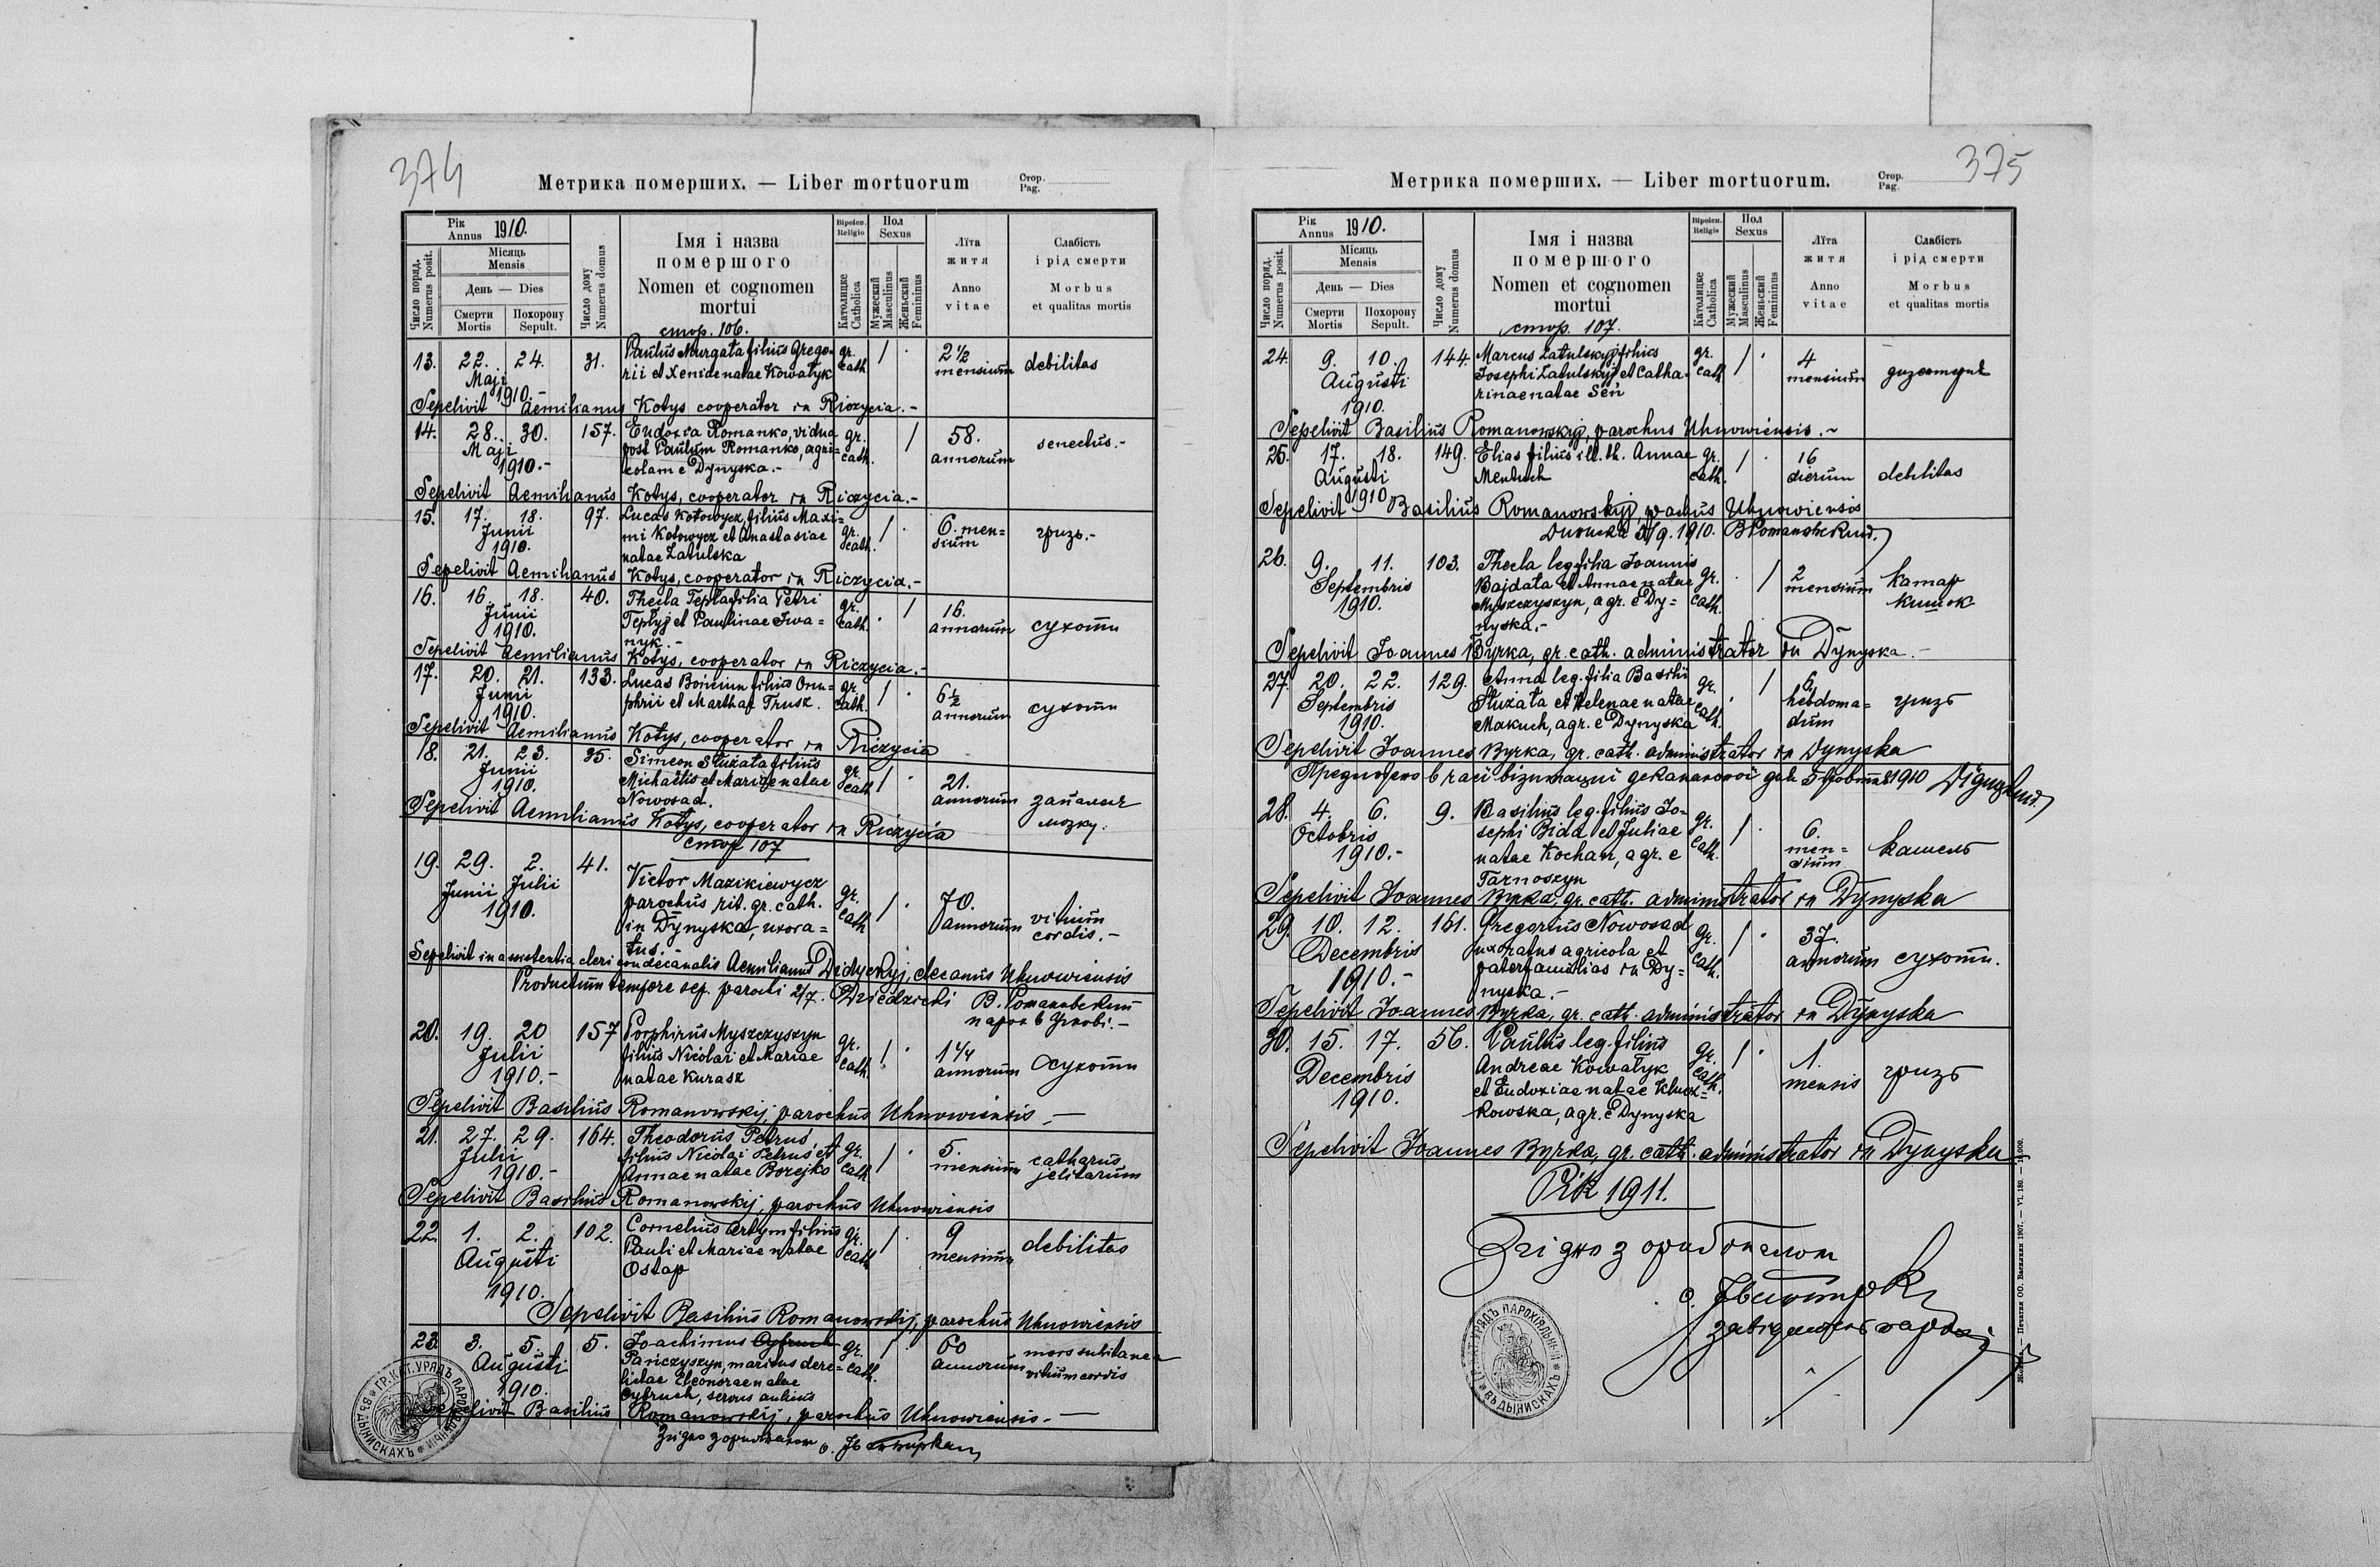 374
Метрика померших. — Liber mortuorum
Стор.
Pag.
Рік
Annus 1910.
Число поряд.
Numerus posit.
Місяць
Mensis
День — Dies
Смерти
Mortis
Похорону
Sepult.
Число дому
Numerus domus
Імя і назва
помершого
Nomen et cognomen
mortui
стор. 106.
Віроіспов.
Religio
Католицке
Catholica
Пол
Sexus
Мужеский
Masculinus
Женьский
Femininus
Літа
житя
Anno
vitae
Слабість
і рід смерти
Morbus
et qualitas mortis
13. 22. 24. 31. Paulus Murgata filius Grego- gr. 1 . 2½ debilitas
Maji rii et Xeniae natae Kowalyk cath mensium
1910.-
Sepelivit Aemilianus Kotys cooperator in Riczycia.-
14. 28. 30. 157. Eudoxia Romanko, vidua gr. 1 58. senectus.-
Maji post Paulum Romanko, agri- cath. annorum
1910.- colam e Dynyska.-
Sepelivit Aemilianus Kotys, cooperator in Riczycia.-
15. 17. 18. 97. Lucas Kotowycz, filius Maxi- gr. 1 . 6. men- гризь.-
Junii mi Kotowycz et Anastasiae cath. sium
1910. natae Zatulska
Sepelivit Aemilianus Kotys, cooperator in Riczycia.-
16. 16. 18. 40. Thecla Tepla filia Petri gr. . 1 16. сухоти
Junii Teplyj et Paulinae Iwa- cath. annorum
1910. nyk.-
Sepelivit Aemilianus Kotys, cooperator in Riczycia.-
17. 20. 21. 133. Lucas filius Onu- gr. 1 . 6½ сухоти
Junii phrii et Marthae Trusz. cath. annorum
1910.
Sepelivit Aemilianus Kotys, cooperator in Riczycia
18. 21. 23. 35. Simeon Služata filius gr. 1 . 21. запаленє
Junii Michaelis et Mariae natae cath annorum мозку.
1910. Nowosad.
Sepelivit Aemilianus Kotys, cooperator in Riczycia
стор 107
19. 29. 2. 41. Victor Mazikiewycz gr. 1 . 70. vitium
Junii Julii parochus rit. gr. cath. cath annorum cordis.-
1910. in Dynyska, uxora-
tus.-
Sepelivit in assistentia cleri condecanalis Aemilianus Didyckyj, decanus Uhnowiensis
Productum tempore sep. parochi 2/7. Dziedzicki В. Романовский
парох в Угнові.-
20. 19. 20 157 Porphirus Myszczyszyn gr. 1 . 1¼ сухоти
Julii filius Nicolai et Mariae cath. annorum
1910.- natae Kurasz
Sepelivit Basilius Romanowskij, parochus Uhnowiensis.—
21. 27. 29. 164. Theodorus Petrus, gr. 1 . 5. catharus
Julii filius Nicolai Petrus et cath mensium jelitarum
1910.- Annae natae Borejko
Sepelivit Basilius Romanowskij, parochus Uhnowiensis
22. 1. 2. 102. Cornelius Artym filius gr. 1 . 9 debilitas
Augusti Pauli et Mariae natae cath mensium
1910. Ostap
Sepelivit Basilius Romanowskij, parochus Uhnowiensis
23. 3. 5. 5. Joachimus Cybruch gr. 1 . 60 mors subitanea
Augusti Pańczyszyn, maritus dere- cath. annorum vitium cordis
1910. lictae Eleonorae natae
Cybruch, servus aulicus
Sepelivit Basilius Romanowskij, parochus Uhnowiensis.—
Згідно з оригіналом о.
375
Метрика померших. — Liber mortuorum.
Стор.
Pag.
Рік
Annus 1910.
Число поряд.
Numerus posit.
Місяць
Mensis
День — Dies
Смерти
Mortis
Похорону
Sepult.
Число дому
Numerus domus
Імя і назва
помершого
Nomen et cognomen
mortui
стор. 107.
Віроіспов.
Religio
Католицке
Catholica
Пол
Sexus
Мужеский
Masculinus
Женьский
Femininus
Літа
житя
Anno
vitae
Слабість
і рід смерти
Morbus
et qualitas mortis
24. 9. 10. 144. Marcus Zatulskyj filius gr. 1 . 4
Augusti Josephi Zatulskyj et Catha- cath mensium
1910. rinae natae Seń
Sepelivit Basilius Romanowskij, parochus Uhnowiensis.~
25. 17. 18. 149. Elias filius ill. th. Annae gr. 1 . 16 debilitas
Augusti cath. dierum
1910
Sepelivit Basilius Romanowskij, parochus Uhnowiensis
Диниска 9. 1910. ВРомановский.
26. 9. 11. 103. Thecla leg. filia Joannis gr. . 1 2 катар
Septembris Bajdala et Annae natae cath. mensium кишок
1910. Myszczyszyn, agr. e Dy-
nyska.-
Sepelivit Joannes Byrka, gr. cath. administrator in Dynyska.-
27. 20. 22. 129. Anna leg. filia Basilii gr. . 1 6 гризь
Septembris Služata et Helenae natae cath. hebdoma-
1910. Makuch, agr. e Dynyska dum
Sepelivit Joannes Byrka, gr. cath. administrator in Dynyska
Предложено в часі візитациї деканальної дня 5 1910 Дідицкий
28. 4. 6. 9. Basilius leg. filius Jo- gr. 1 . 6. кашель
Octobris sephi Bida et Juliae cath. men-
1910.- natae Kochan, agr. e sium
Tarnoszyn
Sepelivit Joannes Byrka, gr. cath. administrator in Dynyska
29. 10. 12. 161. Gregorius Nowosad gr. 1 . 37. сухоти.
Decembris uxoratus agricola et cath. annorum
1910.- paterfamilias in Dy-
nyska.-
Sepelivit Joannes Byrka, gr. cath. administrator in Dynyska
30. 15. 17. 56. Paulus leg. filius gr. 1 . 1 гризь
Decembris Andreae Kowalyk cath. mensis
1910. et Eudoxiae natae
kowska, agr. e Dynyska
Sepelivit Joannes Byrka, gr. cath. administrator in Dynyska
Рік 1911.
Згідно з оригіналом
о.
завідатель